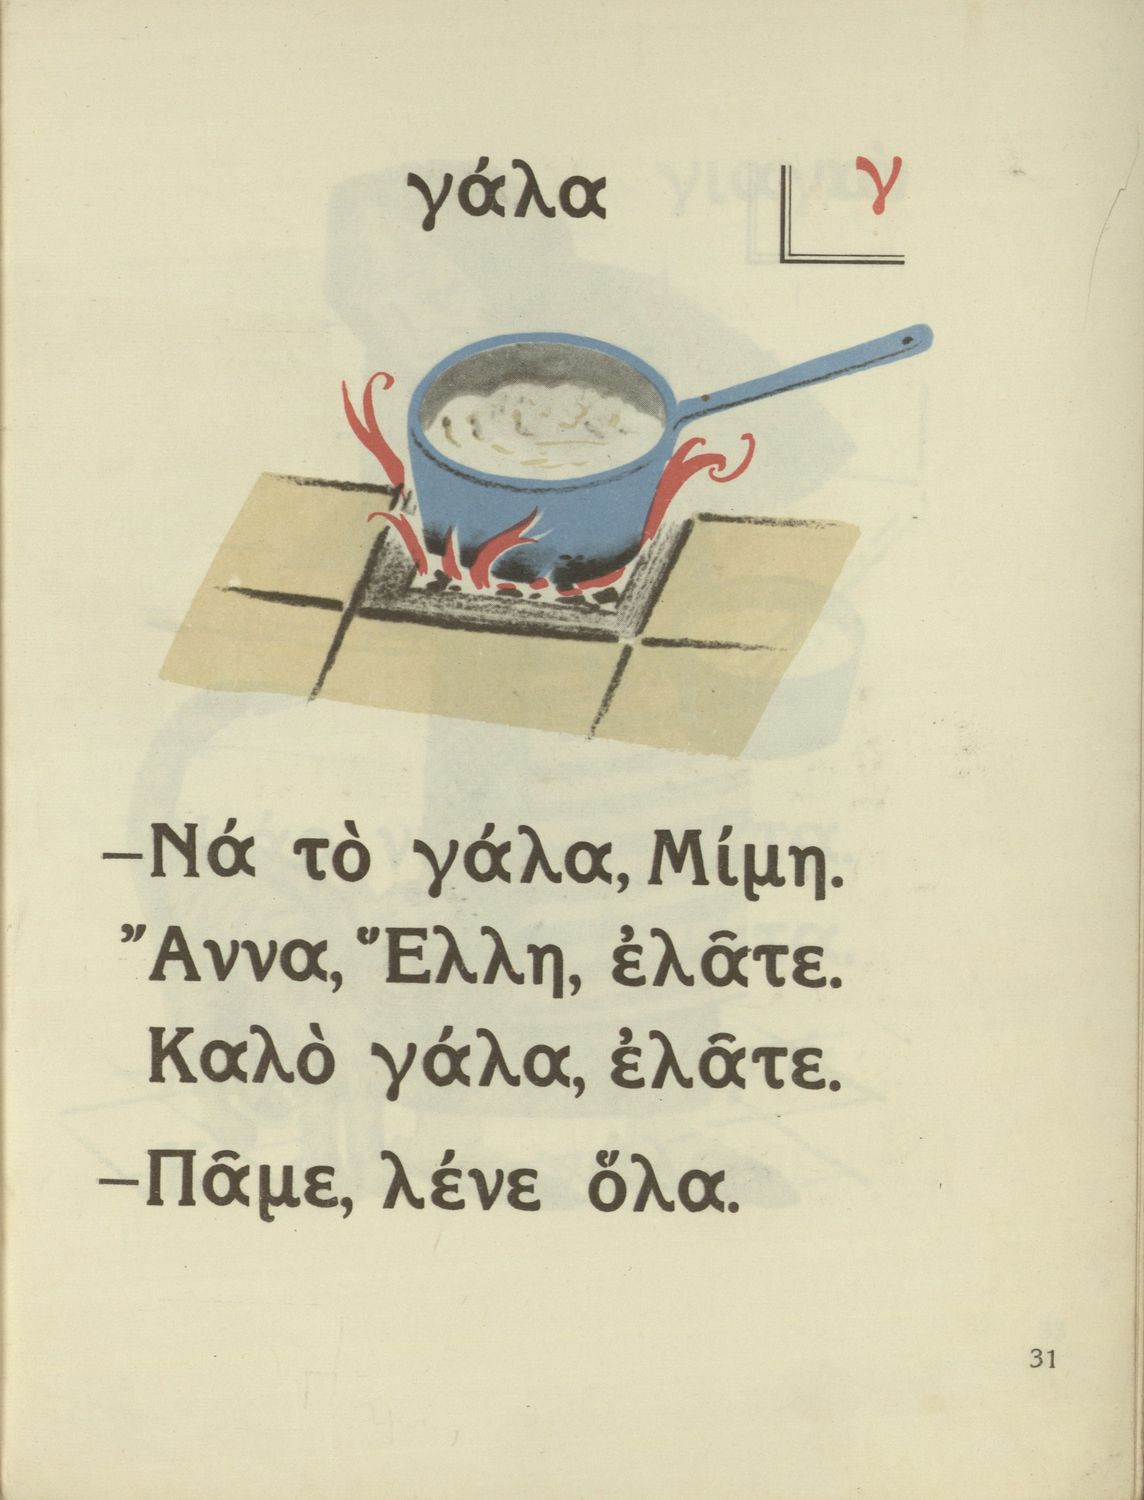 γάλα
γ
–Νά τὸ γάλα, Μίμη.
Ἄννα, Ἕλλη, ἐλᾶτε.
Καλὸ γάλα, ἐλᾶτε.
–Πᾶμε, λένε ὅλα.
31